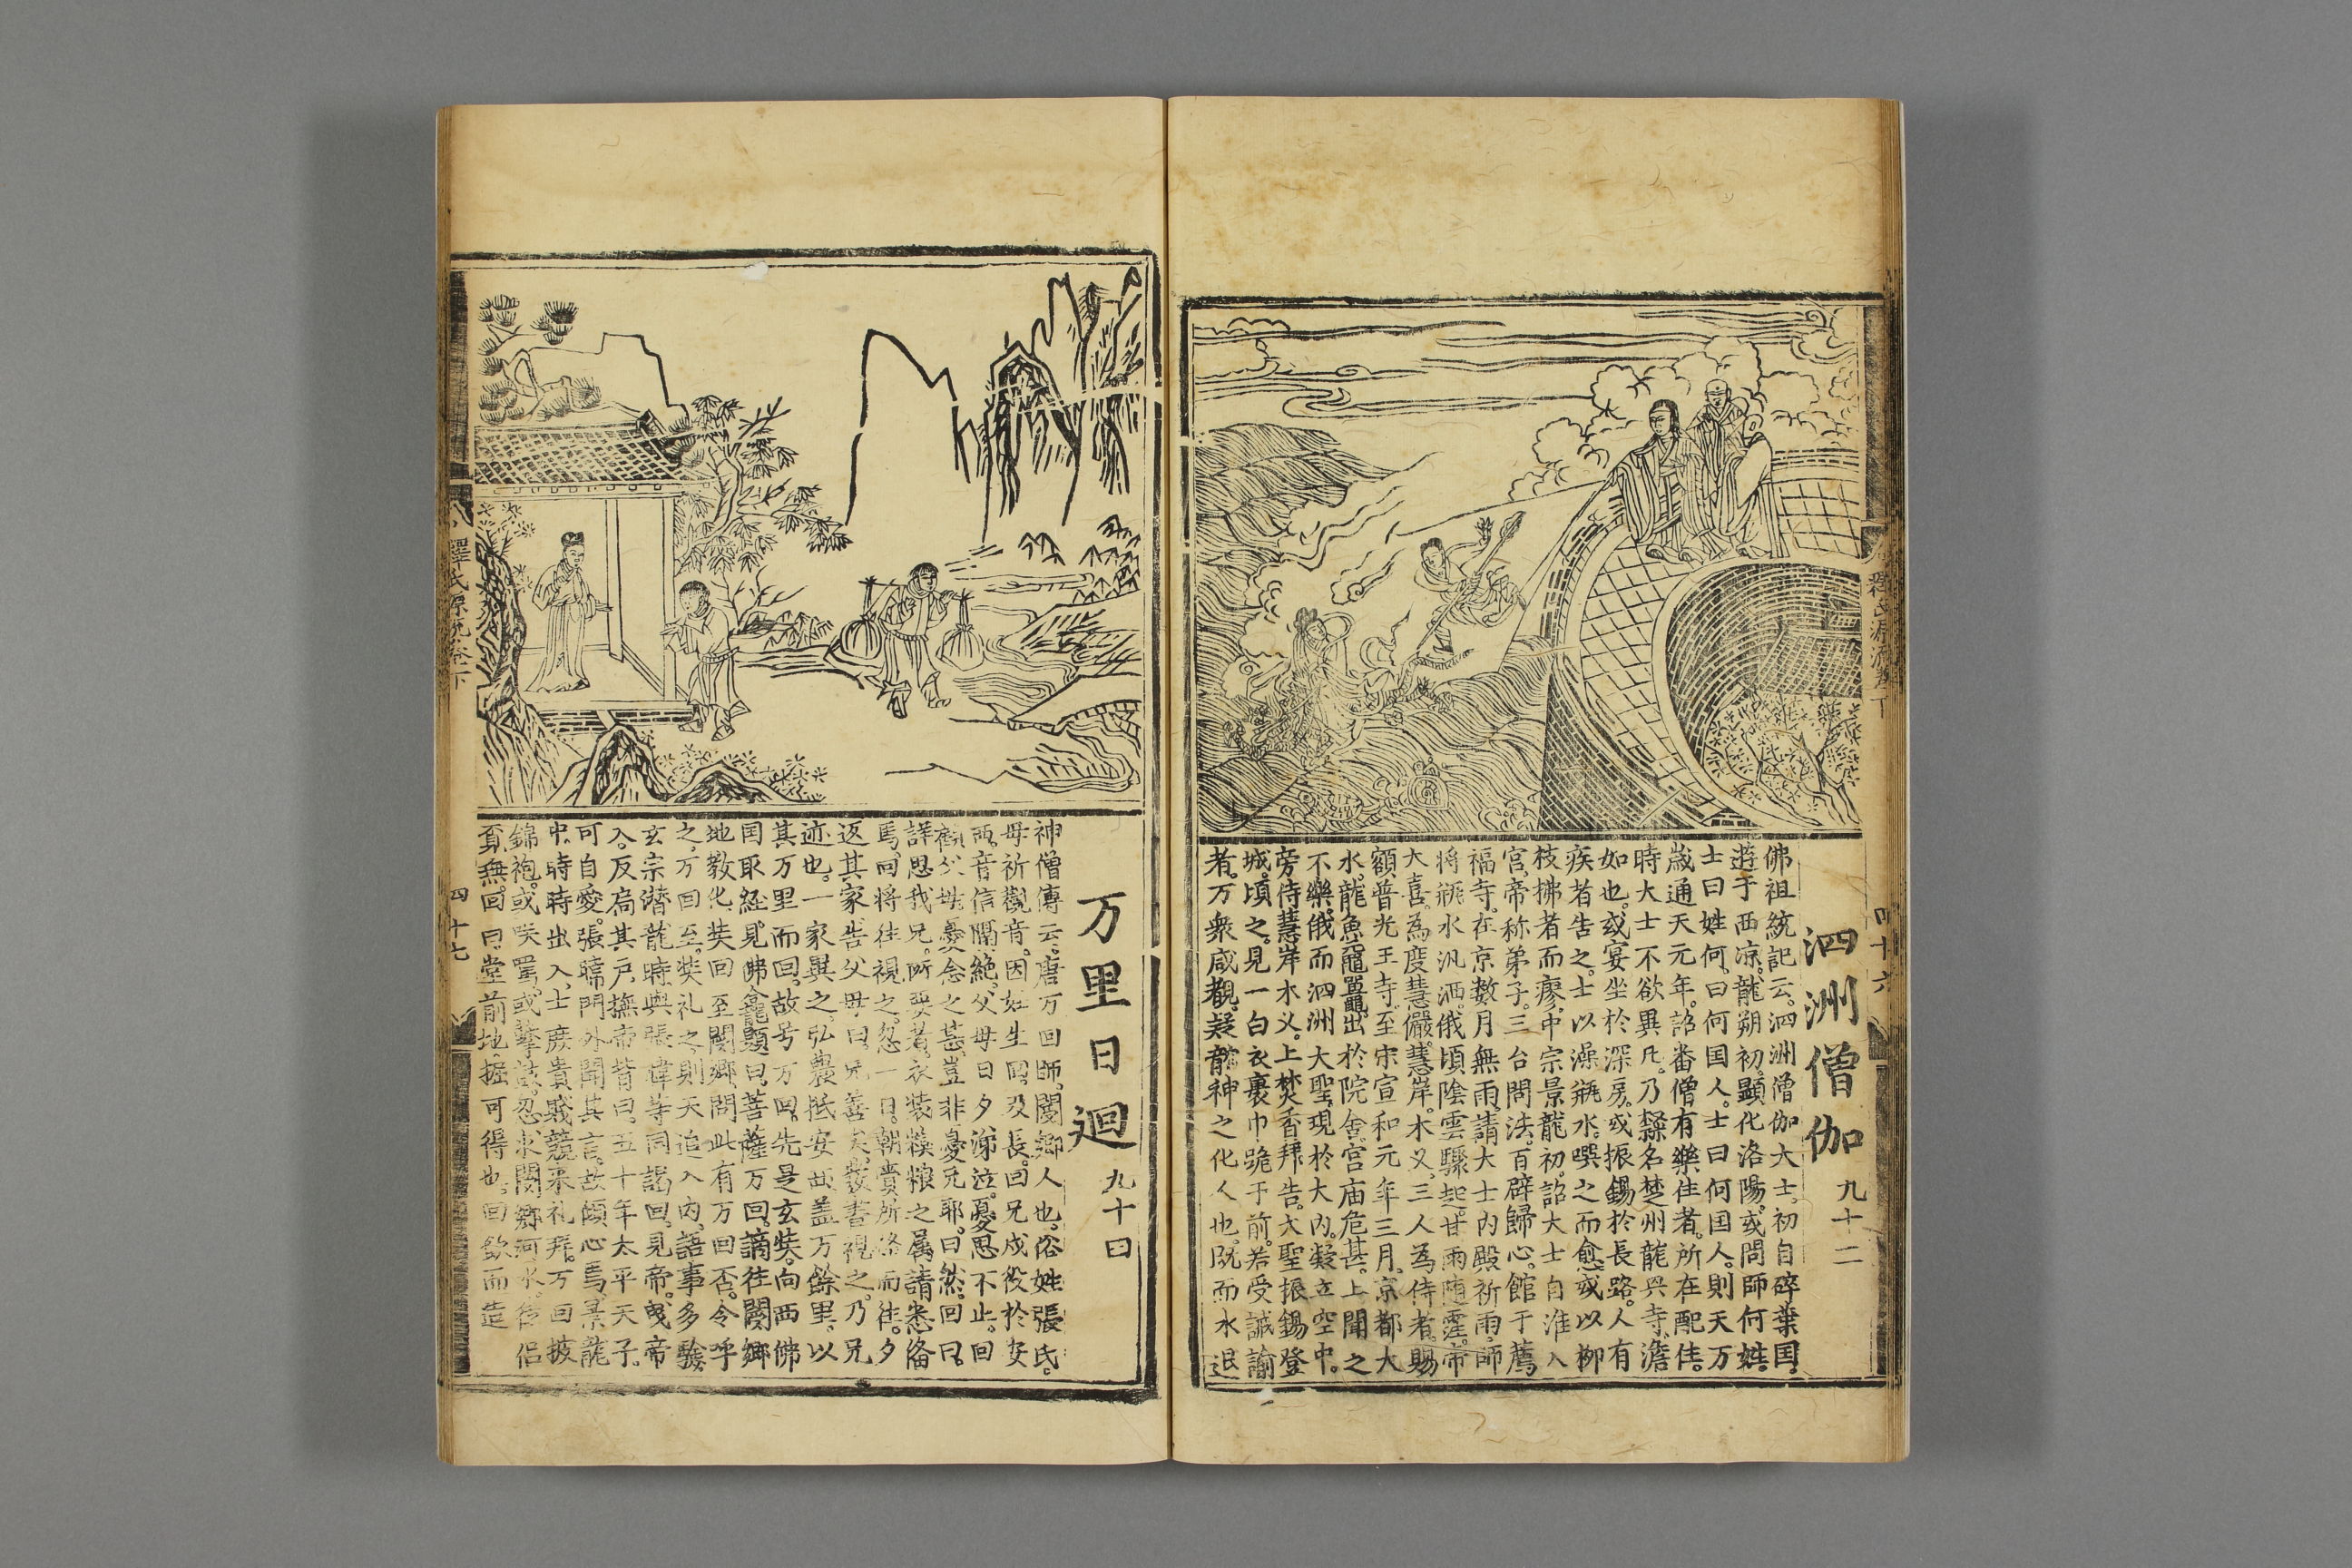 泗洲僧伽 九十二
佛祖統記云。泗洲僧伽大士。初自碎葉国。
遊于西凉。龍朔初。顯化洛陽。或問師何姓。
士曰姓何。曰何国人。士曰何国人。則天万
歲通天元年。詔畨僧有樂住者。所在配住。
時大士不欲異凡。乃隸名楚州龍兴寺。澹
如也。或宴坐於深房。或振錫於長路。人有
疾者告之。士以澡瓶水。噀之而愈。或以栁
枝拂者而瘳。中宗景龍初。詔大士自淮入
宮。帝称弟子。三台問法。百辟歸心。館于薦
福寺。在京数月無雨。請大士内殿祈雨。師
将瓶水汎洒。俄頃隂雲驟起。甘雨随霔。帝
大喜。為度慧儼。慧岸。木叉。三人為侍者。賜
額普光王寺。至宋宣和元年三月。京都大
水。龍魚黿鼉出於院舍。宮庙危甚。上聞之
不樂。俄而泗洲大聖。現於大内。凝立空中。
旁侍慧岸木义。上焚香拜告。大聖振錫登
城。頃之。見一白衣裹巾跪于前。若受誡諭
者。万衆咸覩。疑龍神之化人也。既而水退
四十六
万里日迴 九十四
神僧傳云。唐万回師。閿鄉人也。俗姓張氏。
母祈觀音。因如生回。及長。回兄戍役於安
西。音信隔絶。父母日夕涕泣。憂思不止。回
顧父母憂念之甚。豈非憂兄耶。曰然。回曰。
詳思我兄。所要者。衣装糗粮之属。請悉俻
焉。回将往視之。忽一日。朝賫所俻而往。夕
返其家。告父母曰。兄善矣。發書視之。乃兄
迹也。一家異之。弘農抵安西。盖万餘里。以
其万里而回。故号万回。先是玄奘。向西佛
国取経。見佛龕題曰。菩薩万回。謫往閿鄉
地教化。奘回至閿鄉。問此有万回否。令呼
之。万回至。奘礼之。則天追入内。語事多驗。
玄宗潜龍時。與張暐等同謁回。見帝。曳帝
入。反扃其户。撫帝背曰。五十年太平天子。
可自愛。張暐門外聞其言。故傾心焉。景龍
中。時時出入。士庶貴贱競来礼拜。万回披
錦袍。或咲罵。或擊鼓。忽求閿鄉河水。徒侣
覔無。回曰。堂前地。掘可得也。回飲而造
四十七